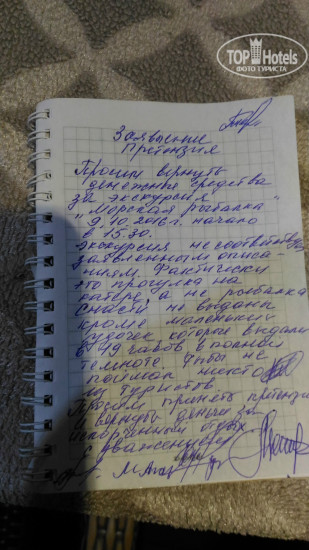 TOP Hotels
ФОТО ТУРИСТА
Заявление
Претензия
Просим вернуть
денежные средства
за экскурсия
"Морская рыбалка"
9.10.2016 г. начало
в 15.30.
экскурсия не соответствует
заявленным описа-
ниям. Фактически
это прогулка на
катере, а не рыбалка
снасти не выданы
кроме маленьких
удочек которые выдали
в 19 часов в полной
темноте. Рыбы не
поймал никто
из туристов.
Просим принять претензию
и вернуть деньги за
испорченный отдых
с уважением